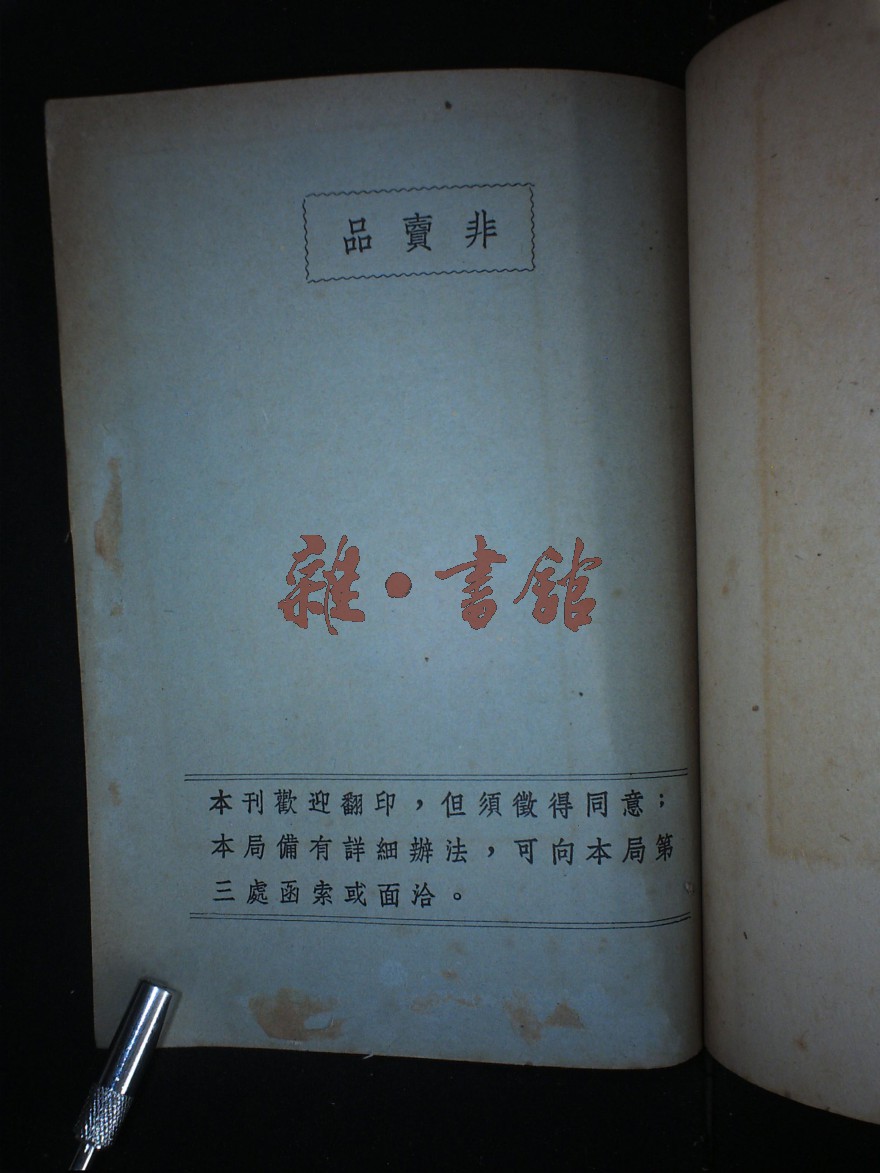 非賣品
雜·書館
本刊歡迎翻印，但須徵得同意；
本局備有詳細辦法，可向本局第
三處函索或面洽。